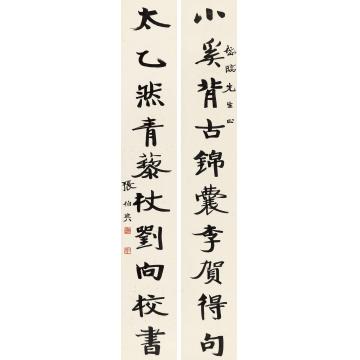 小奚背古錦囊李賀得句
先生正
太乙然青藜杖劉向校書
張伯英